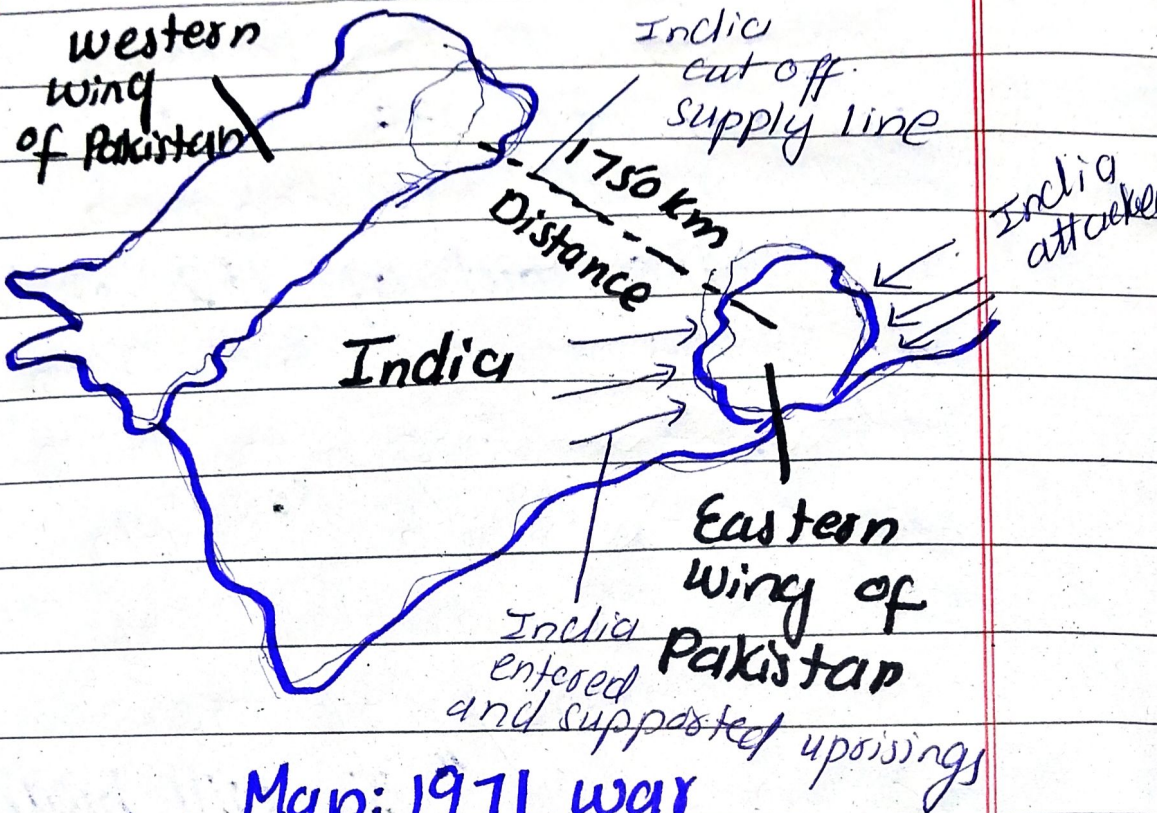 Western
wing
of Pakistan
India
cut off
supply line
1750 km
Distance
India
attacked
India
Eastern
wing of
Pakistan
India
entered
and supported uprisings
Map: 1971 war